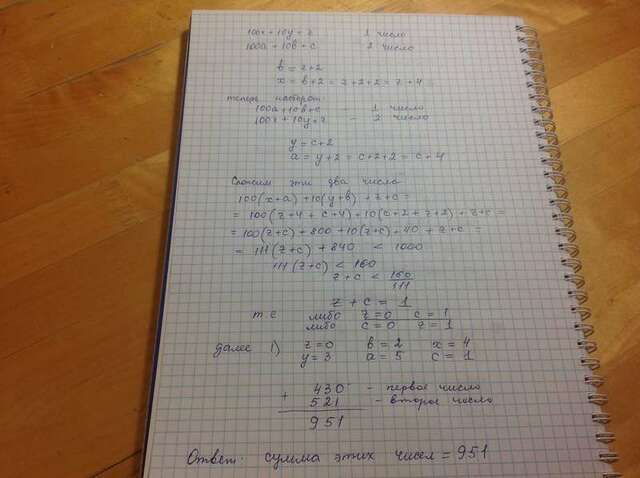 100x + 10y + z 1 число
100a + 10в + c 2 число
в = z + 2
x = в + 2 = z + 2 + 2 = z + 4
теперь наоборот
100a + 10в + c - 1 число
100x + 10y + z - 2 число
y = c + 2
a = y + 2 = c + 2 + 2 = c + 4
Сложим эти два числа
100(x + a) + 10(y + в) + z + c =
= 100(z + 4 + c + 4) + 10(c + 2 + z + 2) + z + c =
= 100(z + c) + 800 + 10(z + c) + 40 + z + c =
= 111(z + c) + 840 < 1000
111(z + c) < 160
z + c < 160/111
z + c = 1
т.е либо z = 0 c = 1
либо c = 0 z = 1
далее 1) z = 0 в = 2 x = 4
y = 3 a = 5 c = 1
+ 430 - первое число
521 - второе число
951
Ответ: сумма этих чисел = 951